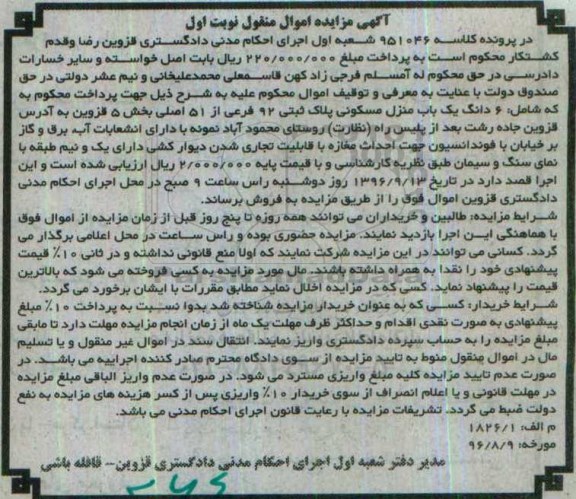 آگهی مزایده اموال منقول نوبت اول
در پرونده کلاسه ۹۵۱۰۴۶ شعبه اول اجرای احکام مدنی دادگستری قزوین رضا وقدم
کشتکار محکوم است به پرداخت مبلغ ۲۲۰/۰۰۰/۰۰۰ ریال بابت اصل خواسته و سایر خسارات
دادرسی در حق محکوم له آمسلم فرجی زاد کهن قاسمعلی محمدعلیخانی و نیم عشر دولتی در حق
صندوق دولت با عنایت به معرفی و توقیف اموال محکوم علیه به شرح ذیل جهت پرداخت محکوم به
که شامل: ۶ دانگ یک باب منزل مسکونی پلاک ثبتی ۹۲ فرعی از ۵۱ اصلی بخش ۵ قزوین به آدرس
قزوین جاده رشت بعد از پلیس راه (نظارت) روستای محمود آباد نمونه با دارای انشعابات آب، برق و گاز
بر خیابان با فونداسیون جهت احداث مغازه با قابلیت تجاری شدن دیوار کشی دارای یک و نیم طبقه با
نمای سنگ و سیمان طبق نظریه کارشناسی و با قیمت پایه ۲/۰۰۰/۰۰۰ ریال ارزیابی شده است و این
اجرا قصد دارد در تاریخ ۱۳۹۶/۹/۱۳ روز دوشنبه راس ساعت ۹ صبح در محل اجرای احکام مدنی
دادگستری قزوین اموال فوق را از طریق مزایده به فروش برساند.
شرایط مزایده: طالبین و خریداران می توانند همه روزه تا پنج روز قبل از زمان مزایده از اموال فوق
با هماهنگی این اجرا بازدید نمایند. مزایده حضوری بوده و راس ساعت در محل اعلامی برگذار می
گردد. کسانی می توانند در این مزایده شرکت نمایند که اولا منع قانونی نداشته و در ثانی ۱۰٪ قیمت
پیشنهادی خود را نقدا به همراه داشته باشند. مال مورد مزایده به کسی فروخته می شود که بالاترین
قیمت را پیشنهاد نماید. کسی که در مزایده اخلال نماید مطابق مقررات با ایشان برخورد می گردد.
شرایط خریدار: کسی که به عنوان خریدار مزایده شناخته شد بدوا نسبت به پرداخت ۱۰٪ مبلغ
پیشنهادی به صورت نقدی اقدام و حداکثر ظرف مهلت یک ماه از زمان انجام مزایده مهلت دارد تا مابقی
مبلغ مزایده را به حساب سپرده دادگستری واریز نمایند. انتقال سند در اموال غیر منقول و یا تسلیم
مال در اموال منقول منوط به تایید مزایده از سوی دادگاه محترم صادر کننده اجراییه می باشد. در
صورت عدم تایید مزایده کلیه مبلغ واریزی مسترد می شود. در صورت عدم واریز الباقی مبلغ مزایده
در مهلت قانونی و یا اعلام انصراف از سوی خریدار ۱۰٪ واریزی پس از کسر هزینه های مزایده به نفع
دولت ضبط می گردد. تشریفات مزایده با رعایت قانون اجرای احکام مدنی می باشد.
م الف: ۱۸۲۶/۱
مورخه: ۹۶/۸/۹
مدیر دفتر شعبه اول اجرای احکام مدنی دادگستری قزوین-- قافله باشی